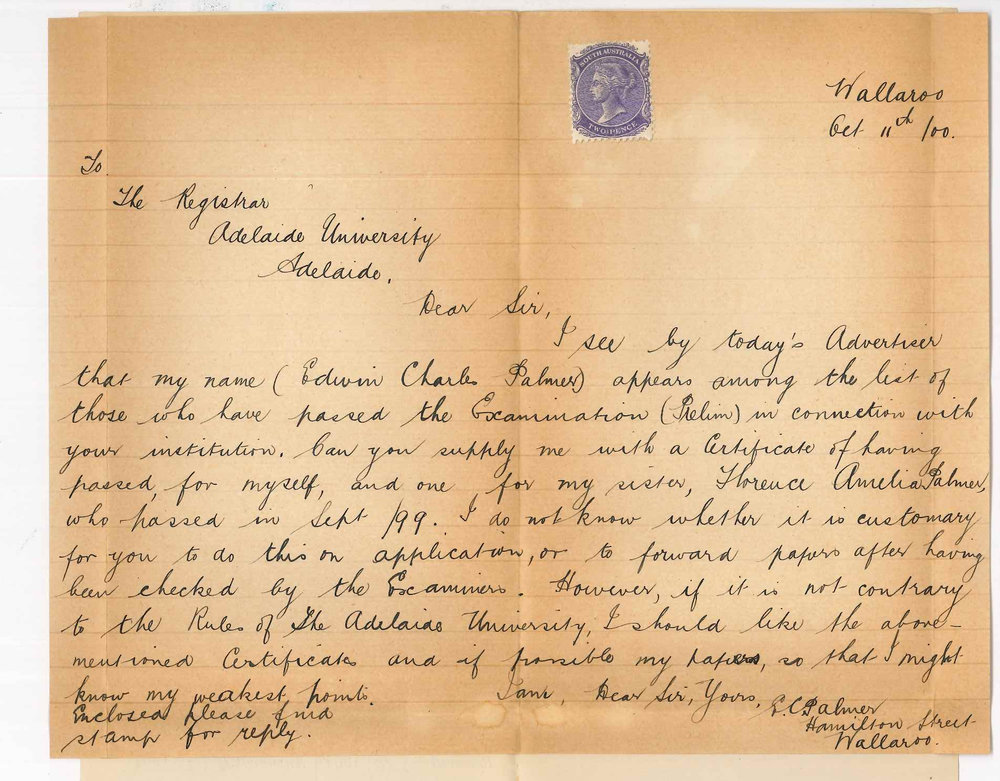 SOUTH AUSTRALIA
TWO PENCE
Wallaroo
Oct 11th /00.
To
The Registrar
Adelaide University
Adelaide.
Dear Sir,
I see by today's Advertiser
that my name (Edwin Charles Palmer) appears among the list of
those who have passed the Examination (Prelim) in connection with
your institution. Can you supply me with a Certificate of having
passed, for myself, and one for my sister, Florence Amelia Palmer,
who passed in Sept /99. I do not know whether it is customary
for you to do this on application, or to forward papers after having
been checked by the Examiners. However, if it is not contrary
to the Rules of The Adelaide University, I should like the above-
mentioned Certificates and if possible my papers, so that I might
know my weakest points. I am, Dear Sir, Yours,
E.C Palmer
Enclosed please find
Hamilton Street
stamp for reply.
Wallaroo.